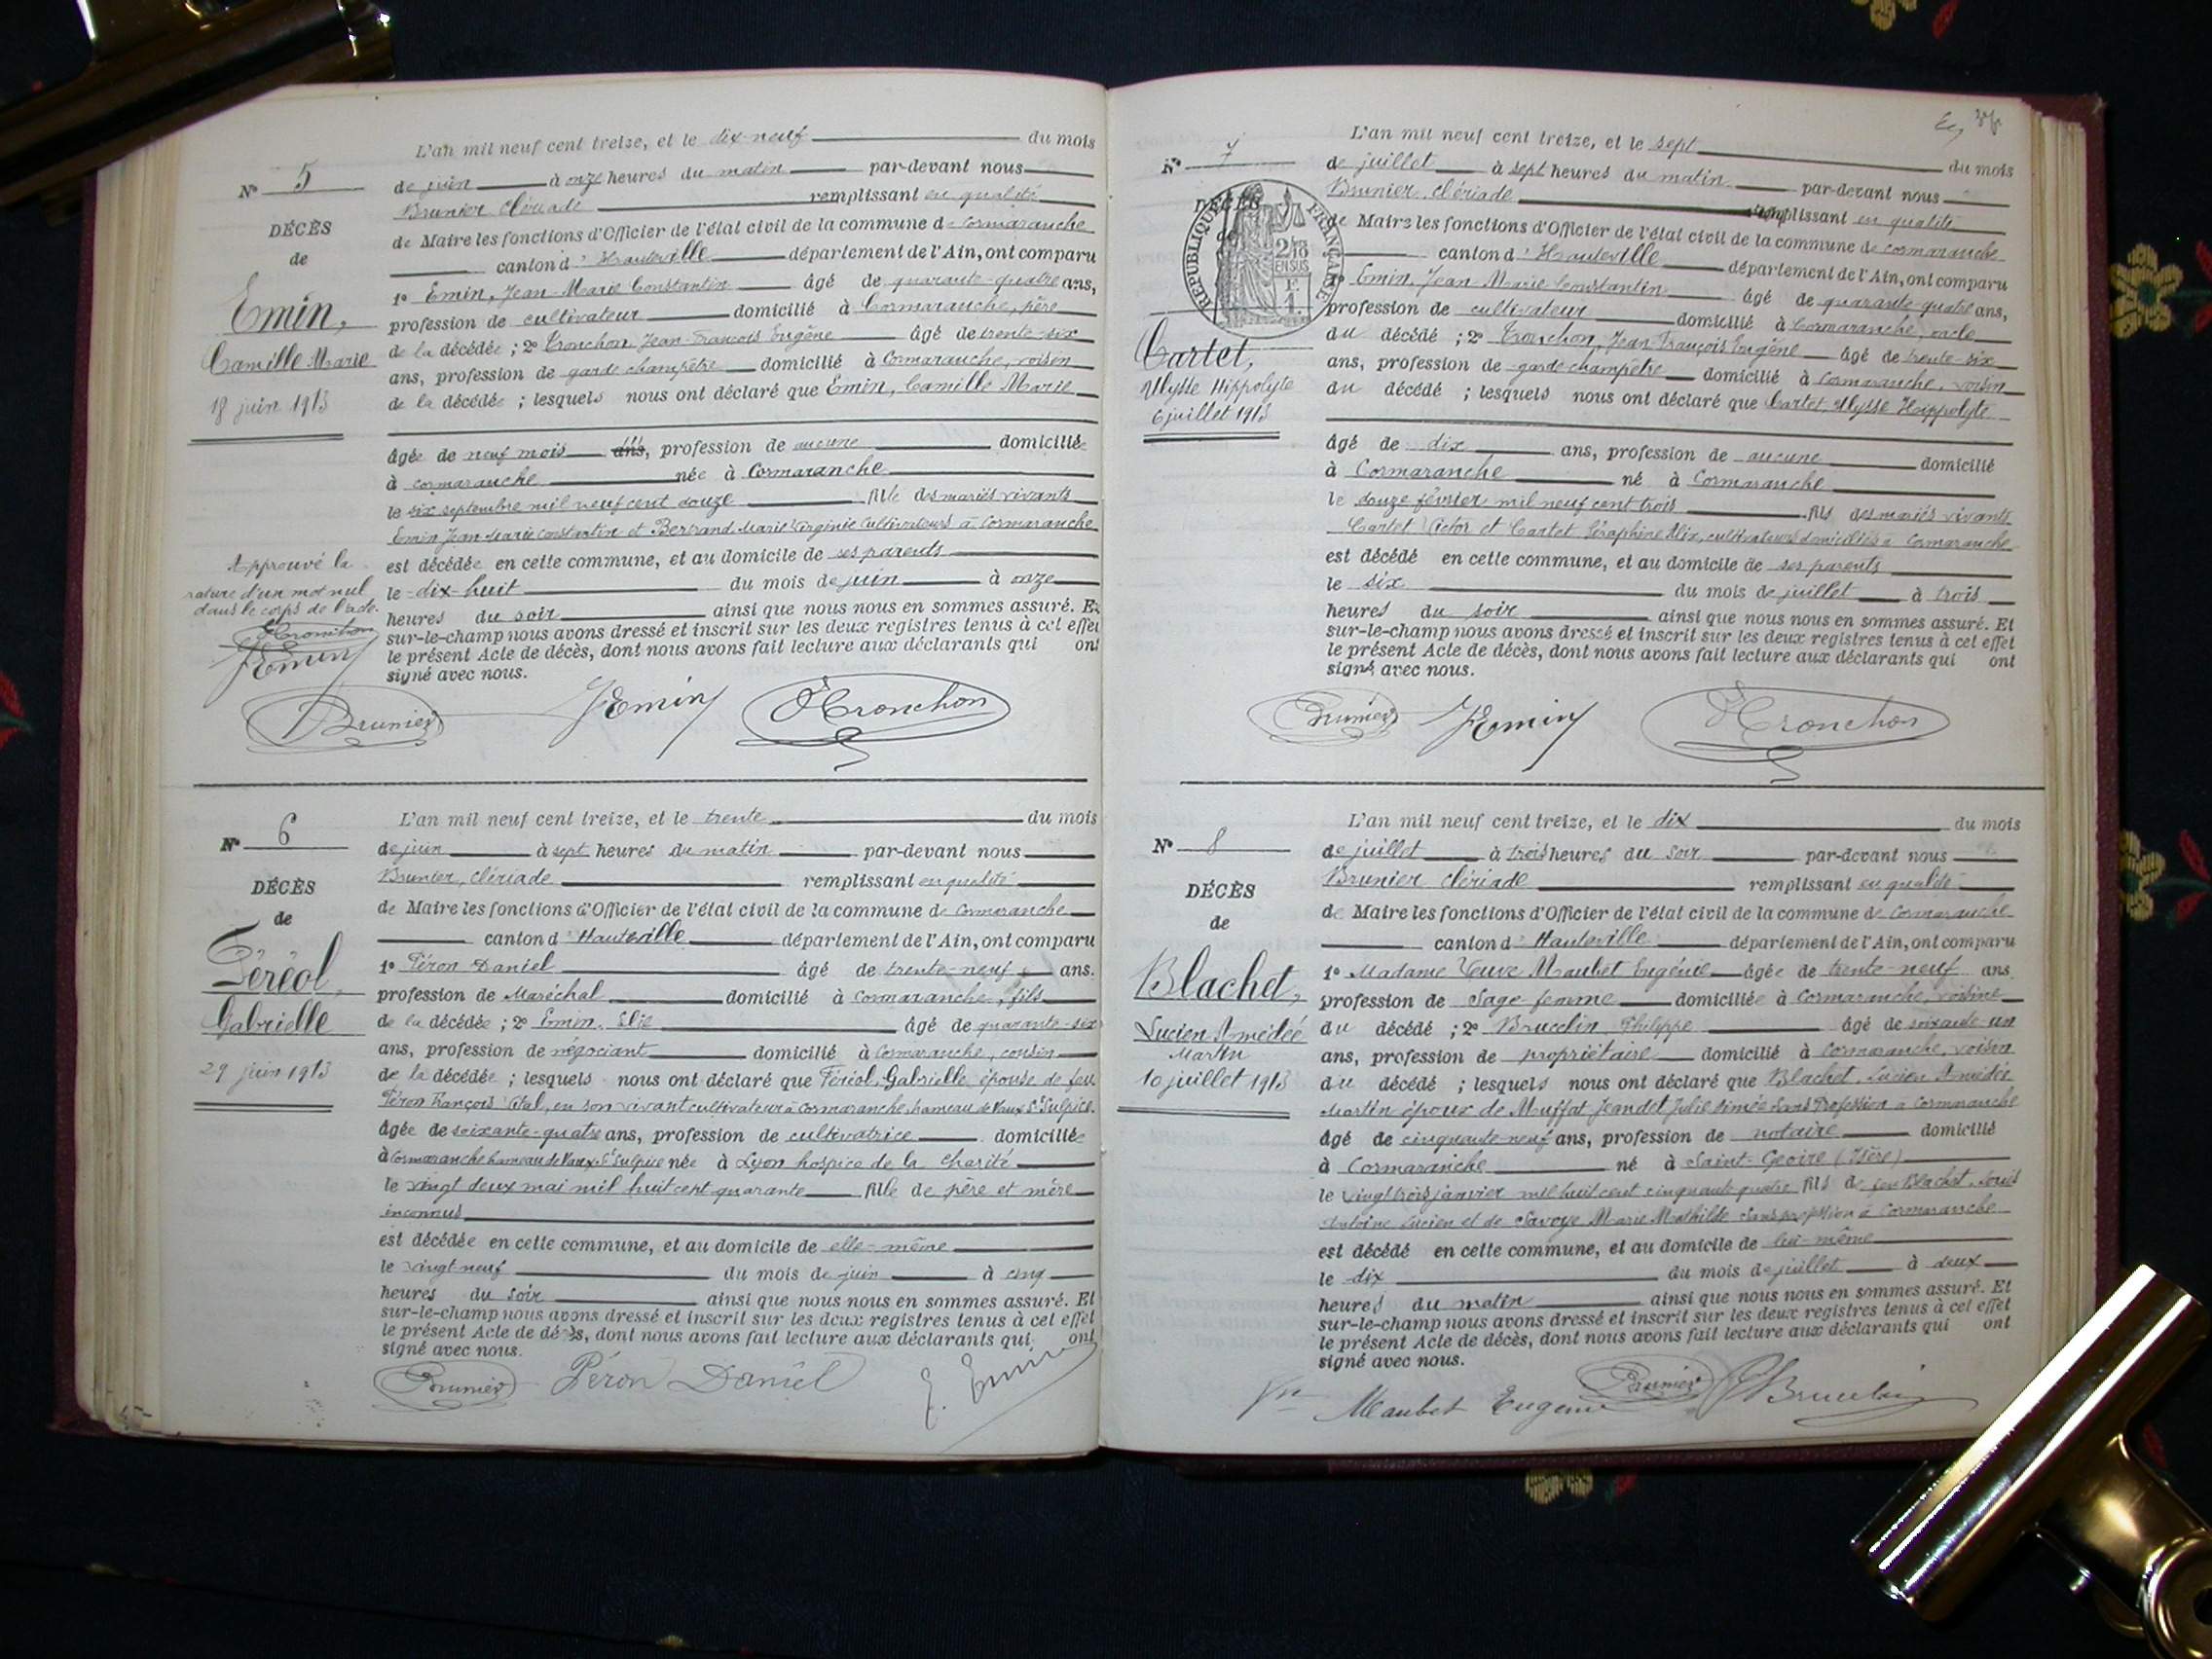 L'an mil neuf cent treize, et le dix-neuf du mois
N° 5
de juin à onze heures du matin par-devant nous
Brunier Clériade remplissant en qualité
DÉCÈS
de Maire les fonctions d'Officier de l'état civil de la commune de Cormaranche
de
canton d'Hauteville département de l'Ain, ont comparu
1° Emin, Jean-Marie Constantin âgé de quarante-quatre ans,
Emin,
profession de cultivateur domicilié à Cormaranche, père
Camille Marie
de la décédée ; 2° Tronchon Jean-François Eugène âgé de trente-six
ans, profession de garde champêtre domicilié à Cormaranche, voisin
18 juin 1913
de la décédée ; lesquels nous ont déclaré que Emin, Camille Marie
âgée de neuf mois ans, profession de aucune domiciliée
à Cormaranche née à Cormaranche
le six septembre mil neuf cent douze fille des mariés vivants
Emin Jean Marie Constantin et Bertrand Marie Virginie Cultivateurs à Cormaranche
Approuvé la
rature d'un mot nul
dans le corps de l'acte.
est décédée en cette commune, et au domicile de ses parents
le dix-huit du mois de juin à onze
heures du soir ainsi que nous nous en sommes assuré. Et
sur-le-champ nous avons dressé et inscrit sur les deux registres tenus à cet effet
le présent Acte de décès, dont nous avons fait lecture aux déclarants qui ont
signé avec nous.
Tronchon
JEmin
Brunier JEmin Tronchon
L'an mil neuf cent treize, et le trente du mois
N° 6
de juin à sept heures du matin par-devant nous
Brunier, Clériade remplissant en qualité
DÉCÈS
de Maire les fonctions d'Officier de l'état civil de la commune de Cormaranche
de
canton d'Hauteville département de l'Ain, ont comparu
Féréol,
1° Péron Daniel âgé de trente-neuf ans.
profession de Maréchal domicilié à Cormaranche, fils
Gabrielle
de la décédée ; 2° Emin, Elie âgé de quarante-six
ans, profession de négociant domicilié à Cormaranche, cousin
29 juin 1913
de la décédée ; lesquels nous ont déclaré que Féréol, Gabrielle épouse de feu
Péron François Vital, en son vivant cultivateur à Cormaranche, hameau de Vaux St Sulpice.
âgée de soixante-quatre ans, profession de cultivatrice domiciliée
à Cormaranche hameau de Vaux-St Sulpice née à Lyon hospice de la Charité
le vingt deux mai mil huit cent quarante fille de père et mère
inconnus
est décédée en cette commune, et au domicile de elle-même
le vingt neuf du mois de juin à cinq
heures du soir ainsi que nous nous en sommes assuré. Et
sur-le-champ nous avons dressé et inscrit sur les deux registres tenus à cet effet
le présent Acte de décès, dont nous avons fait lecture aux déclarants qui ont
signé avec nous.
Brunier Péron Daniel E. Emin
L'an mil neuf cent treize, et le sept du mois
N° 7
de juillet à sept heures du matin par-devant nous
Brunier, Clériade remplissant en qualité
DÉCÈS
RÉPUBLIQUE FRANÇAISE
2/10
EN SUS
F.
1.
de Maire les fonctions d'Officier de l'état civil de la commune de Cormaranche
canton d'Hauteville département de l'Ain, ont comparu
1° Emin, Jean Marie Constantin âgé de quarante quatre ans,
profession de cultivateur domicilié à Cormaranche, oncle
Cartet,
du décédé ; 2° Tronchon, Jean François Eugène âgé de trente-six
ans, profession de garde champêtre domicilié à Cormaranche, voisin
Ulysse Hippolyte
du décédé ; lesquels nous ont déclaré que Cartet, Ulysse Hippolyte
6 juillet 1913
âgé de dix ans, profession de aucune domicilié
à Cormaranche né à Cormaranche
le douze février mil neuf cent trois fils des mariés vivants
Cartet Victor et Cartet Séraphine Alix, cultivateurs domiciliés à Cormaranche
est décédé en cette commune, et au domicile de ses parents
le six du mois de juillet à trois
heures du soir ainsi que nous nous en sommes assuré. Et
sur-le-champ nous avons dressé et inscrit sur les deux registres tenus à cet effet
le présent Acte de décès, dont nous avons fait lecture aux déclarants qui ont
signé avec nous.
Brunier JEmin Tronchon
L'an mil neuf cent treize, et le dix du mois
N° 8
de juillet à trois heures du soir par-devant nous
Brunier Clériade remplissant en qualité
DÉCÈS
de Maire les fonctions d'Officier de l'état civil de la commune de Cormaranche
de
canton d'Hauteville département de l'Ain, ont comparu
Blachet,
1° Madame Veuve Maubet Eugénie âgée de trente-neuf ans.
profession de Sage femme domiciliée à Cormaranche, voisine
Lucien Amédée
du décédé ; 2° Brucelin, Philippe âgé de soixante-un
Martin
ans, profession de propriétaire domicilié à Cormaranche, voisin
10 juillet 1913
du décédé ; lesquels nous ont déclaré que Blachet, Lucien Amédée
Martin époux de Muffat Jeandet Julie Aimée Sans Profession à Cormaranche
âgé de cinquante-neuf ans, profession de notaire domicilié
à Cormaranche né à Saint-Geoire (Isère)
le vingt trois janvier mil huit cent cinquante quatre fils de feu Blachet, Louis
Antoine Lucien et de Savoye Marie Mathilde Sans profession à Cormaranche
est décédé en cette commune, et au domicile de lui-même
le dix du mois de juillet à deux
heures du matin ainsi que nous nous en sommes assuré. Et
sur-le-champ nous avons dressé et inscrit sur les deux registres tenus à cet effet
le présent Acte de décès, dont nous avons fait lecture aux déclarants qui ont
signé avec nous.
Vve Maubet Eugénie Brunier Brucelin